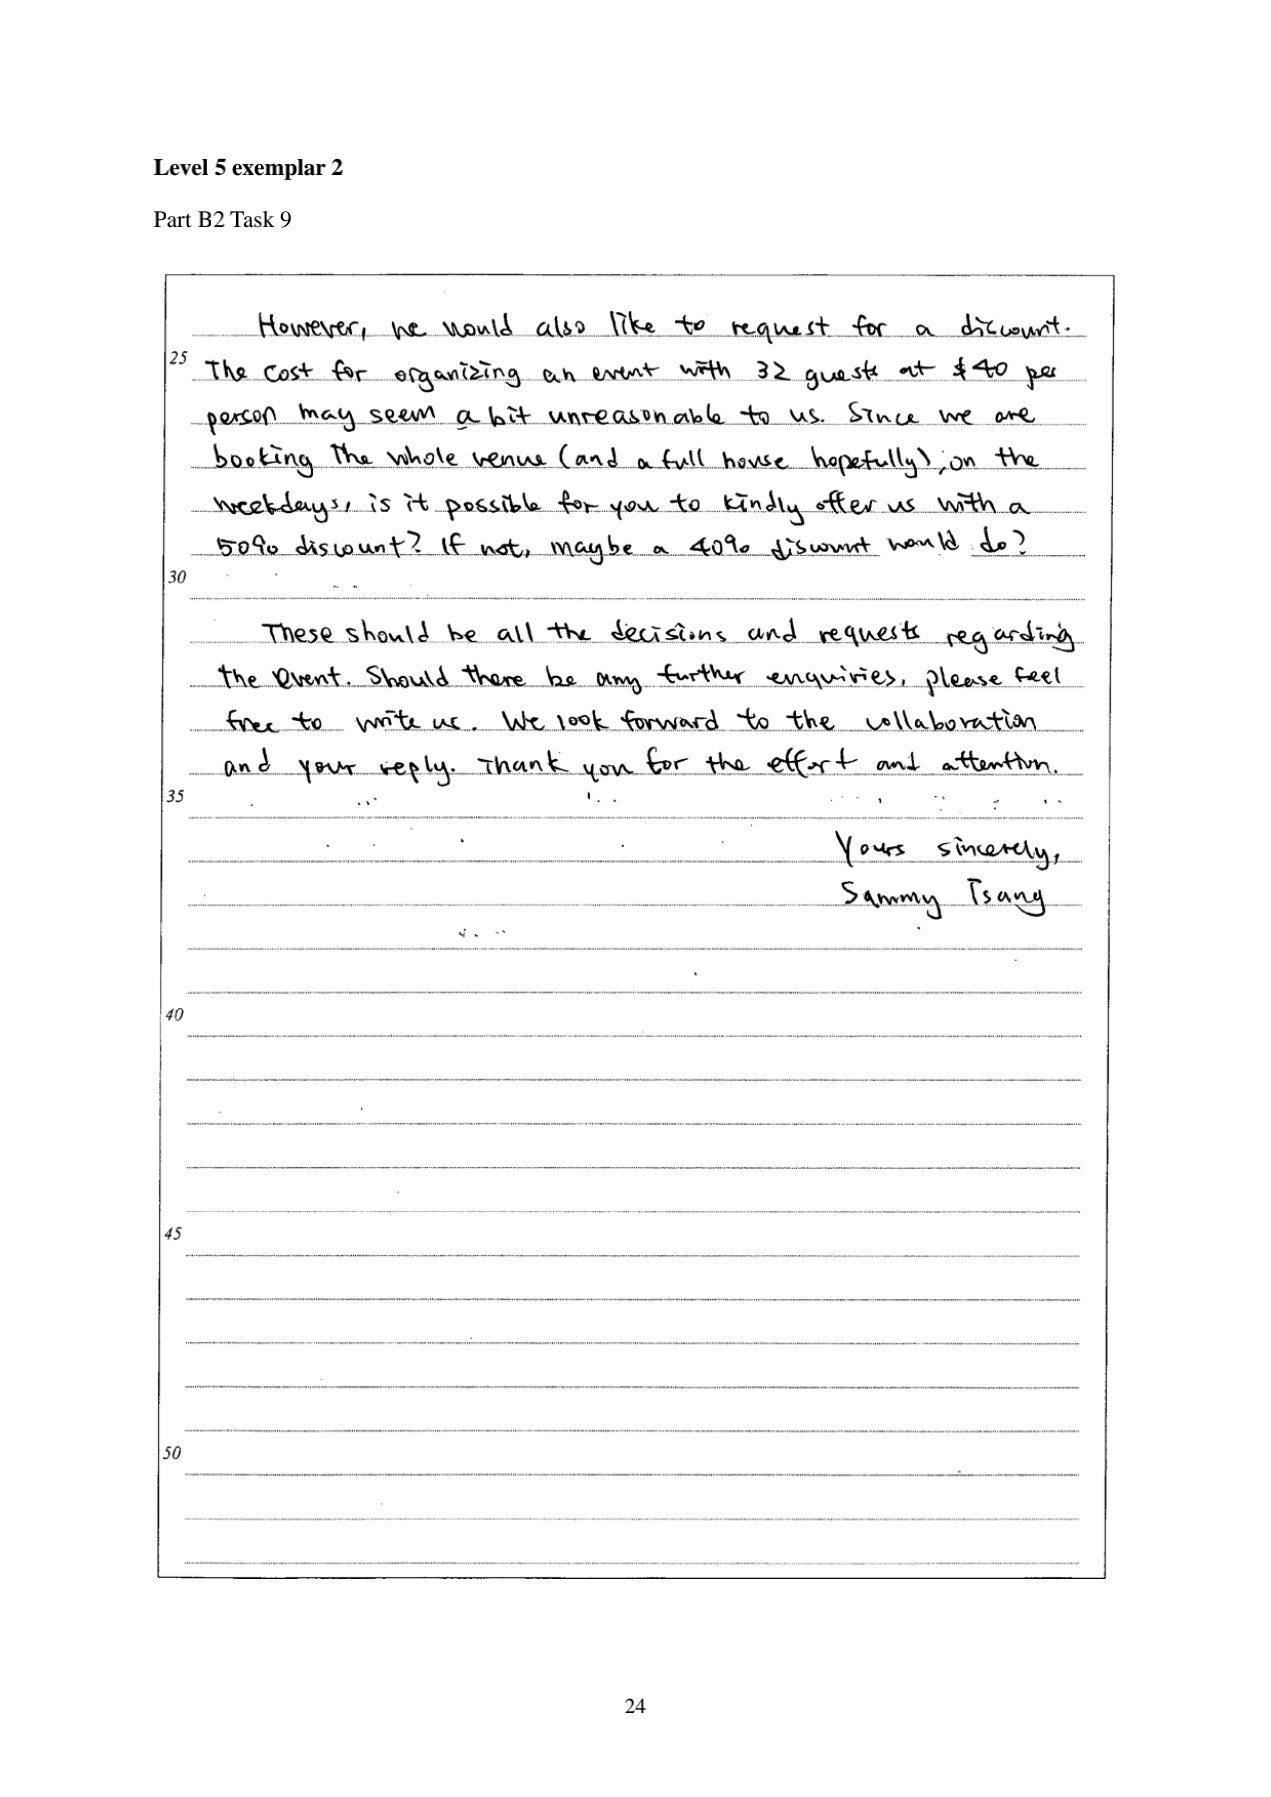 Level 5 exemplar 2
Part B2 Task 9
However, we would also like to request for a discount.
25
The cost for organizing an event with 32 guests at $40 per
person may seem a bit unreasonable to us. Since we are
booking the whole venue (and a full house hopefully), on the
weekdays, is it possible for you to kindly offer us with a
50% discount? If not, maybe a 40% discount would do?
30
These should be all the decisions and requests regarding
the event. Should there be any further enquiries, please feel
free to write us. We look forward to the collaboration
and your reply. Thank you for the effort and attention.
35
Yours sincerely,
Sammy Tsang
40
45
50
24